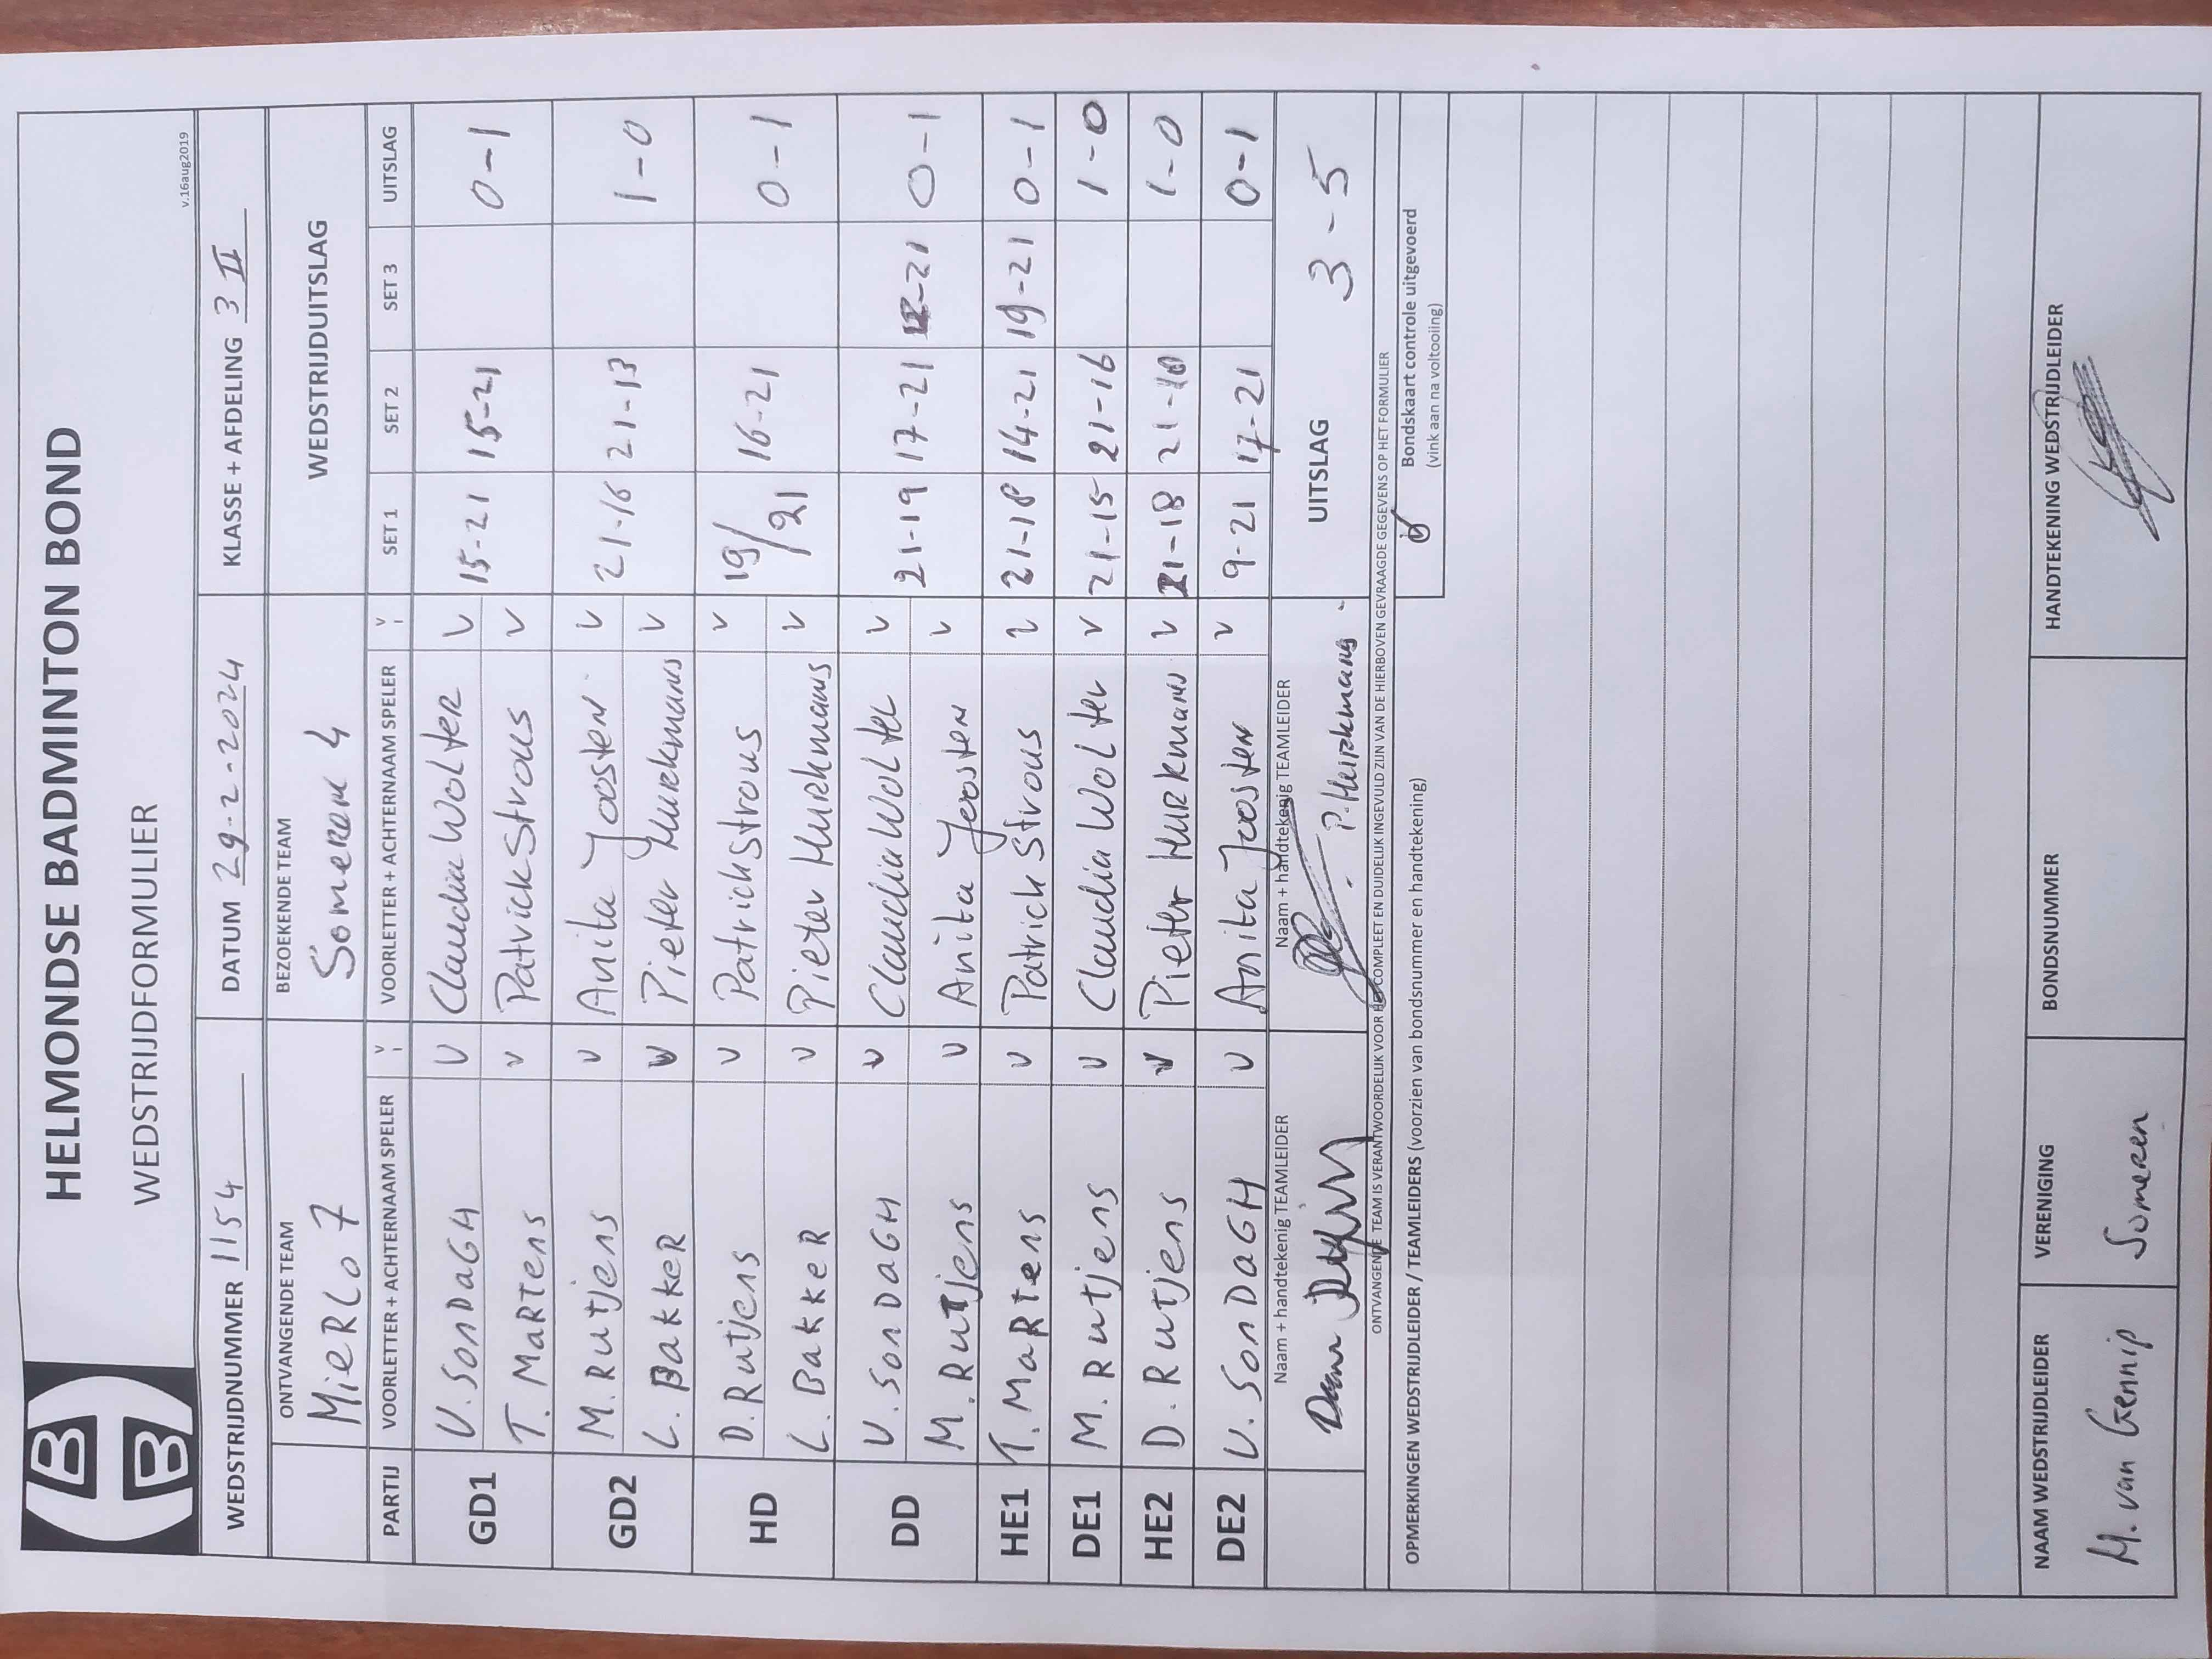 HELMONDSE BADMINTON BOND
WEDSTRIJDFORMULIER
v.16aug2019
WEDSTRIJDNUMMER 1154 DATUM 29-2-2024 KLASSE + AFDELING 3 II
ONTVANGENDE TEAM BEZOEKENDE TEAM WEDSTRIJDUITSLAG
MieRLo 7 Someren 4
PARTIJ VOORLETTER + ACHTERNAAM SPELER V VOORLETTER + ACHTERNAAM SPELER V SET 1 SET 2 SET 3 UITSLAG
GD1 V. SonDaGH V Claudia Wolter V 15-21 15-21 0-1
T. MaRTens V Patrick Strous V
GD2 M. Rutjens V Anita Joosten V 21-16 21-13 1-0
L. BakkeR V Pieter Hurkmans V
HD D. Rutjens V Patrick Strous V 19/21 16-21 0-1
L. BakkeR V Pieter Hurkmans V
DD V. SonDaGH V Claudia Wolter V 21-19 17-21 -21 0-1
M. Rutjens V Anita Joosten V
HE1 T. MaRtens V Patrick Strous V 21-18 14-21 19-21 0-1
DE1 M. Rutjens V Claudia Wolter V 21-15 21-16 1-0
HE2 D. Rutjens V Pieter Hurkmans V 21-18 21-10 1-0
DE2 V. SonDaGH V Anita Joosten V 9-21 17-21 0-1
Naam + handtekenig TEAMLEIDER Naam + handtekenig TEAMLEIDER UITSLAG 3-5
P. Hurkmans
ONTVANGENDE TEAM IS VERANTWOORDELIJK VOOR HET COMPLEET EN DUIDELIJK INGEVULD ZIJN VAN DE HIERBOVEN GEVRAAGDE GEGEVENS OP HET FORMULIER
OPMERKINGEN WEDSTRIJDLEIDER / TEAMLEIDERS (voorzien van bondsnummer en handtekening)
Bondskaart controle uitgevoerd
(vink aan na voltooiing)
NAAM WEDSTRIJDLEIDER VERENIGING BONDSNUMMER HANDTEKENING WEDSTRIJDLEIDER
M. van Gennip Someren